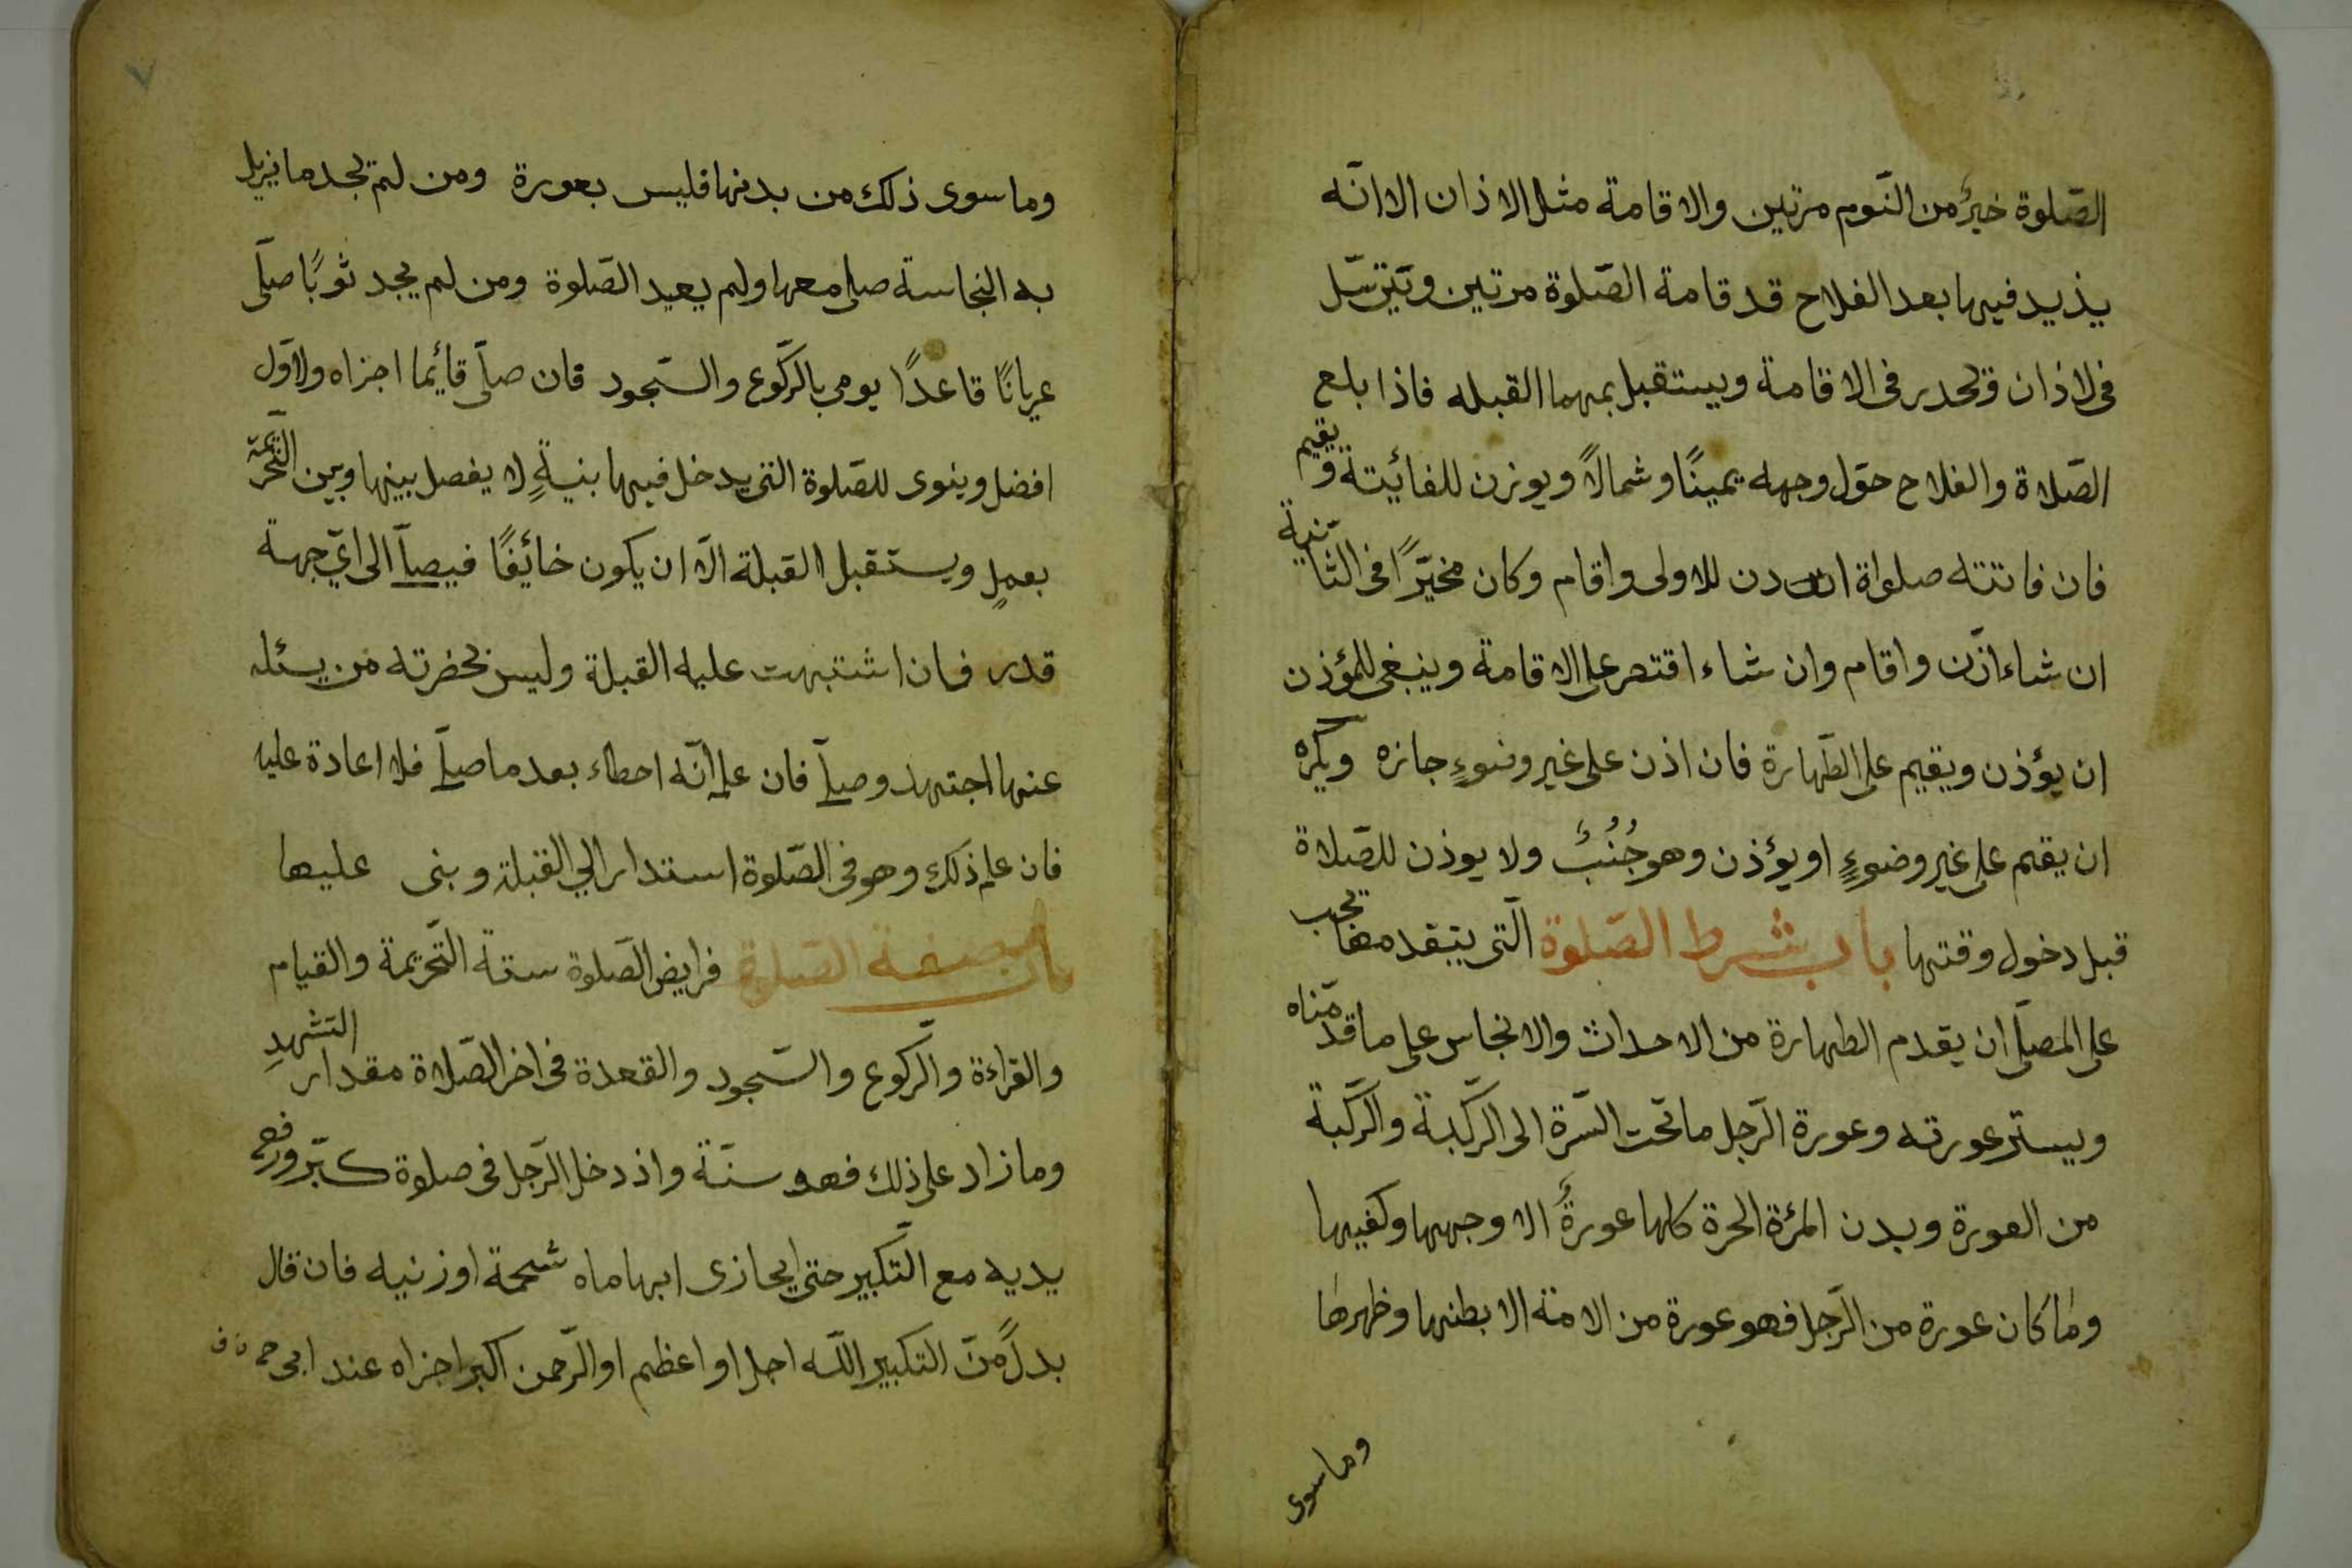 الصّلوة خيرٌ من النّوم مرتين والاقامة مثل الاذان الا انّه
يذيد فيها بعد الفلاح قد قامة الصّلوة مرتين ويترسّل
فى لاذان ويحدر فى الاقامة ويستقبل بهما القبله فاذا بلع
الصّلاة والفلاح حوّل وجهه يمينًا وشمالاً ويوزن للفائيتة ويقيم
فان فاتته صلواة اذن للاولى واقام وكان مخيّرًا فى الثّانية
ان شاء اذّن واقام وان شاء اقتصر على الاقامة وينبغى للمؤذن
ان يؤذن ويقيم على الطّهارة فان اذن على غير وضوءٍ جازه ويكره
ان يقيم على غير وضوءٍ او يؤذن وهو جُنُبٌ ولا يوذن للصّلاة
قبل دخول وقتها باب شرط الصّلوة الّتى يتقدمها يجب
على المصلّى ان يقدم الطهارة من الاحداث والانجاس على ما قدّمناه
ويستر عورته وعورة الرّجل ما تحت السّرة الى الرّكبة والرّكبة
من العورة وبدن المرئة الحرة كلها عورةٌ الا وجهها وكفيها
وما كان عورة من الرّجل فهو عورة من الامة الا بطنها وظهرها
وما سوى
٧
وما سوى ذلك من بدنها فليس بعورة ومن لم يجد ما يزيل
به النجاسة صلى معها ولم يعيد الصّلوة ومن لم يجد ثوبًا صلّى
عريانًا قاعدًا يومى بالرّكوع والسّجود فان صلّى قائما اجزاه ولاوّل
افضل وينوى للصّلوة التى يدخل فيها بنيةٍ لا يفصل بينها وبين التّحريمة
بعملٍ ويستقبل القبلة الّا ان يكون خائفًا فيصلّى الى اىّ جهة
قدر فان اشتبهت عليه القبلة وليس بحضرته من يسئله
عنها اجتهد وصلّى فان علم انّه اخطاء بعد ما صلّى فلا اعادة عليه
فان علم ذلك وهو فى الصّلوة استدار الي القبلة وبنى عليها
باب صفة الصّلوة فرايض الصّلوة ستة التّحريمة والقيام
والقراءة والرّكوع والسّجود والقعدة فى اخر الصّلاة مقدار التشهدِ
وما زاد على ذلك فهو سنّة واذ دخل الرّجل فى صلوة كبّر ورفع
يديه مع التّكبير حتى يحازى ابهاماه شحمة اوزنيه فان قال
بدلًا منّ التكبير اللّه اجل او اعظم او الرّحمن اكبر اجزاه عند ابى